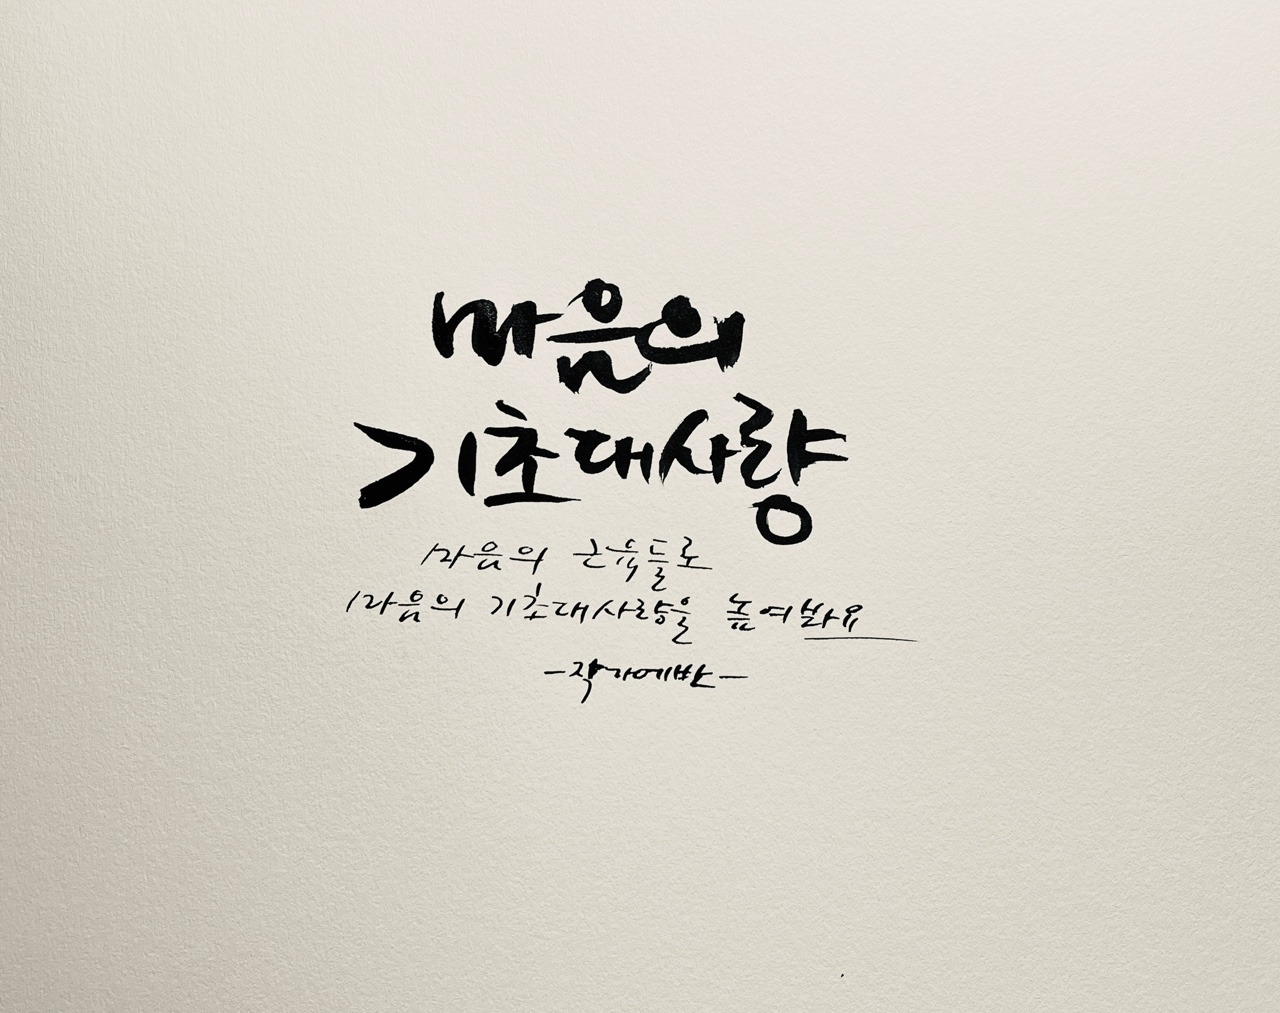 마음의
기초대사량
마음의 근육들로
마음의 기초대사량을 높여봐요
-작가에반-